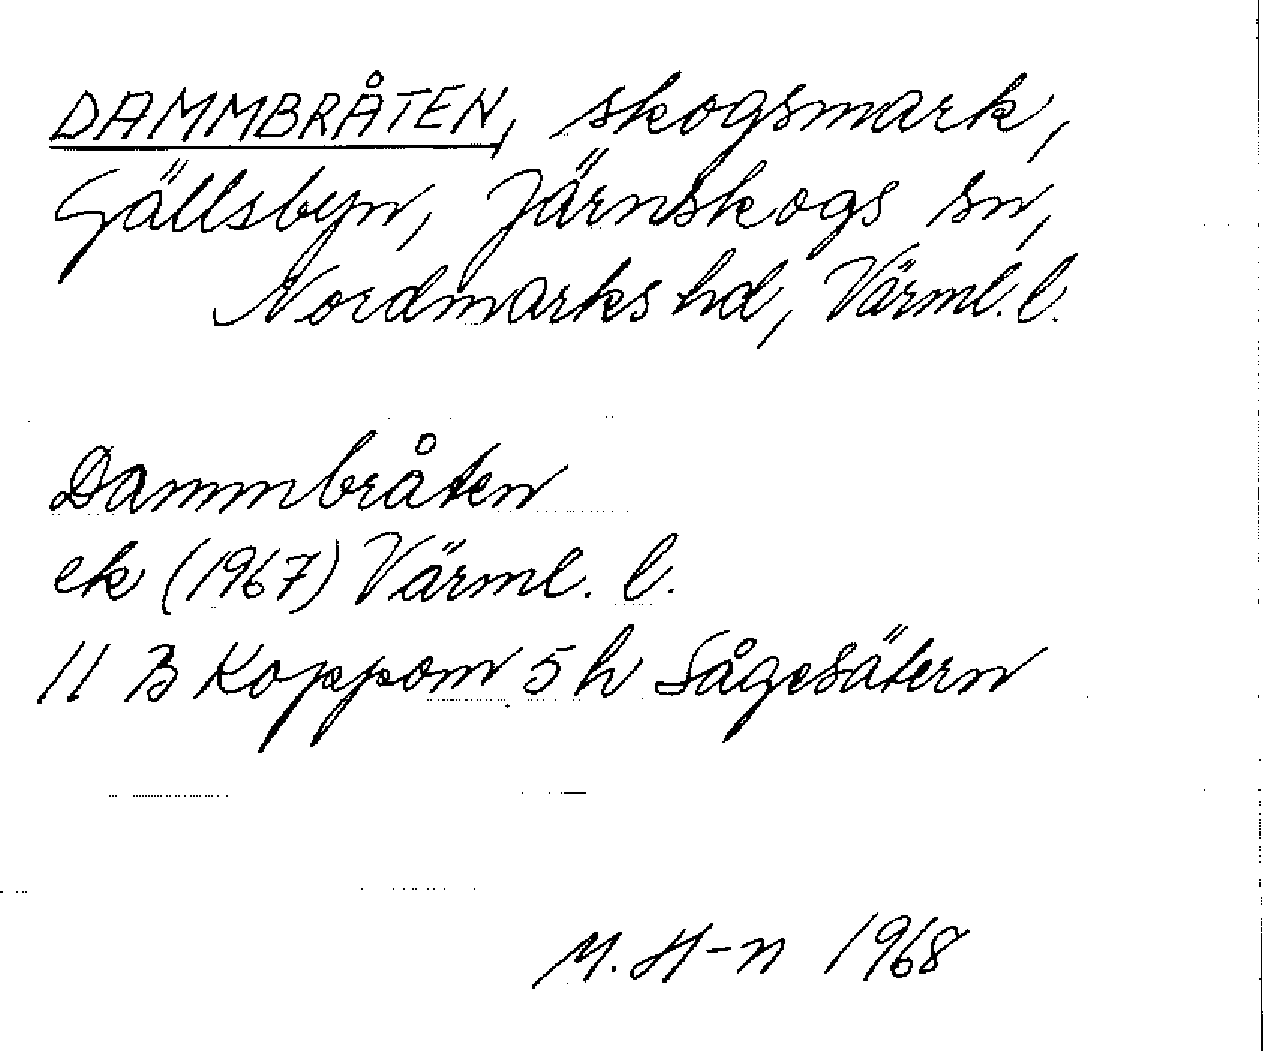 DAMMBRÅTEN, skogsmark,
Gällsbyn, Järnskogs sn,
Nordmarks hd, Värml. l.
Dammbråten
ek (1967) Värml. l.
11 B Koppom 5 h Sågesätern
M. H-n 1968